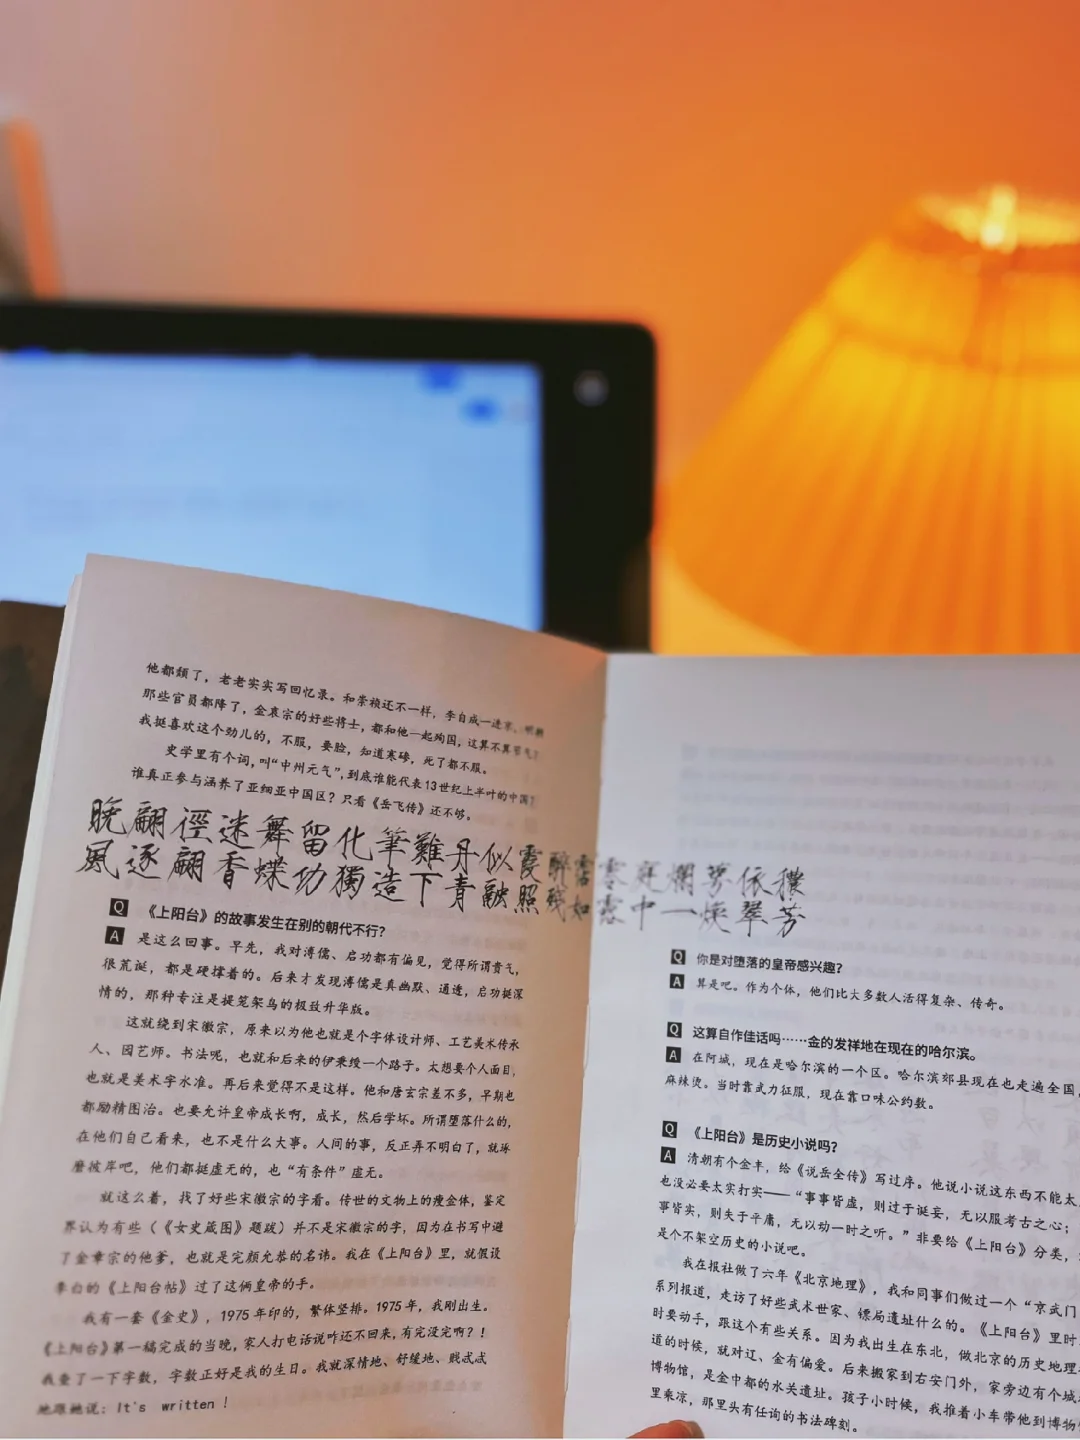 他都颓了，老老实实写回忆录。和崇祯还不一样，李自成一进京，明朝
那些官员都降了，金哀宗的好些将士，都和他一起殉国，这算不算节气？
我挺喜欢这个劲儿的，不服，要脸，知道寒碜，死了都不服。
史学里有个词，叫“中州元气”，到底谁能代表13世纪上半叶的中国？
谁真正参与涵养了亚细亚中国区？只看《岳飞传》还不够。
穠芳
依翠
萼煥
爛一
庭中
零露
霑如
醉殘
霞照
似融
丹青
難下
筆造
化獨
留功
舞蝶
迷香
徑翩
翩逐
晚風
Q 《上阳台》的故事发生在别的朝代不行？
A 是这么回事。早先，我对溥儒、启功都有偏见，觉得所谓贵气，
很荒诞，都是硬撑着的。后来才发现溥儒是真幽默、通透，启功挺深
情的，那种专注是提笼架鸟的极致升华版。
这就绕到宋徽宗，原来以为他也就是个字体设计师、工艺美术传承
人、园艺师。书法呢，也就和后来的伊秉绶一个路子。太想要个人面目，
也就是美术字水准。再后来觉得不是这样。他和唐玄宗差不多，早期也
都励精图治。也要允许皇帝成长啊，成长，然后学坏。所谓堕落什么的，
在他们自己看来，也不是什么大事。人间的事，反正弄不明白了，就琢
磨彼岸吧，他们都挺虚无的，也“有条件”虚无。
就这么着，找了好些宋徽宗的字看。传世的文物上的瘦金体，鉴定
界认为有些（《女史箴图》题跋）并不是宋徽宗的字，因为在书写中避
了金章宗的他爹，也就是完颜允恭的名讳。我在《上阳台》里，就假设
李白的《上阳台帖》过了这俩皇帝的手。
我有一套《金史》，1975年印的，繁体竖排。1975年，我刚出生。
《上阳台》第一稿完成的当晚，家人打电话说咋还不回来，有完没完啊？！
我查了一下字数，字数正好是我的生日。我就深情地、舒缓地、贱忒忒
地跟她说：It's written！
Q 你是对堕落的皇帝感兴趣？
A 算是吧。作为个体，他们比大多数人活得复杂、传奇。
Q 这算自作佳话吗……金的发祥地在现在的哈尔滨。
A 在阿城，现在是哈尔滨的一个区。哈尔滨郊县现在也走遍全国，
麻辣烫。当时靠武力征服，现在靠口味公约数。
Q 《上阳台》是历史小说吗？
A 清朝有个金丰，给《说岳全传》写过序。他说小说这东西不能太
也没必要太实打实——“事事皆虚，则过于诞妄，无以服考古之心；
事皆实，则失于平庸，无以动一时之听。”非要给《上阳台》分类，
是个不架空历史的小说吧。
我在报社做了六年《北京地理》，我和同事们做过一个“京武门
系列报道，走访了好些武术世家、镖局遗址什么的。《上阳台》里时
时要动手，跟这个有些关系。因为我出生在东北，做北京的历史地理
道的时候，就对辽、金有偏爱。后来搬家到右安门外，家旁边有个城
博物馆，是金中都的水关遗址。孩子小时候，我推着小车带他到博物
里乘凉，那里头有任询的书法碑刻。